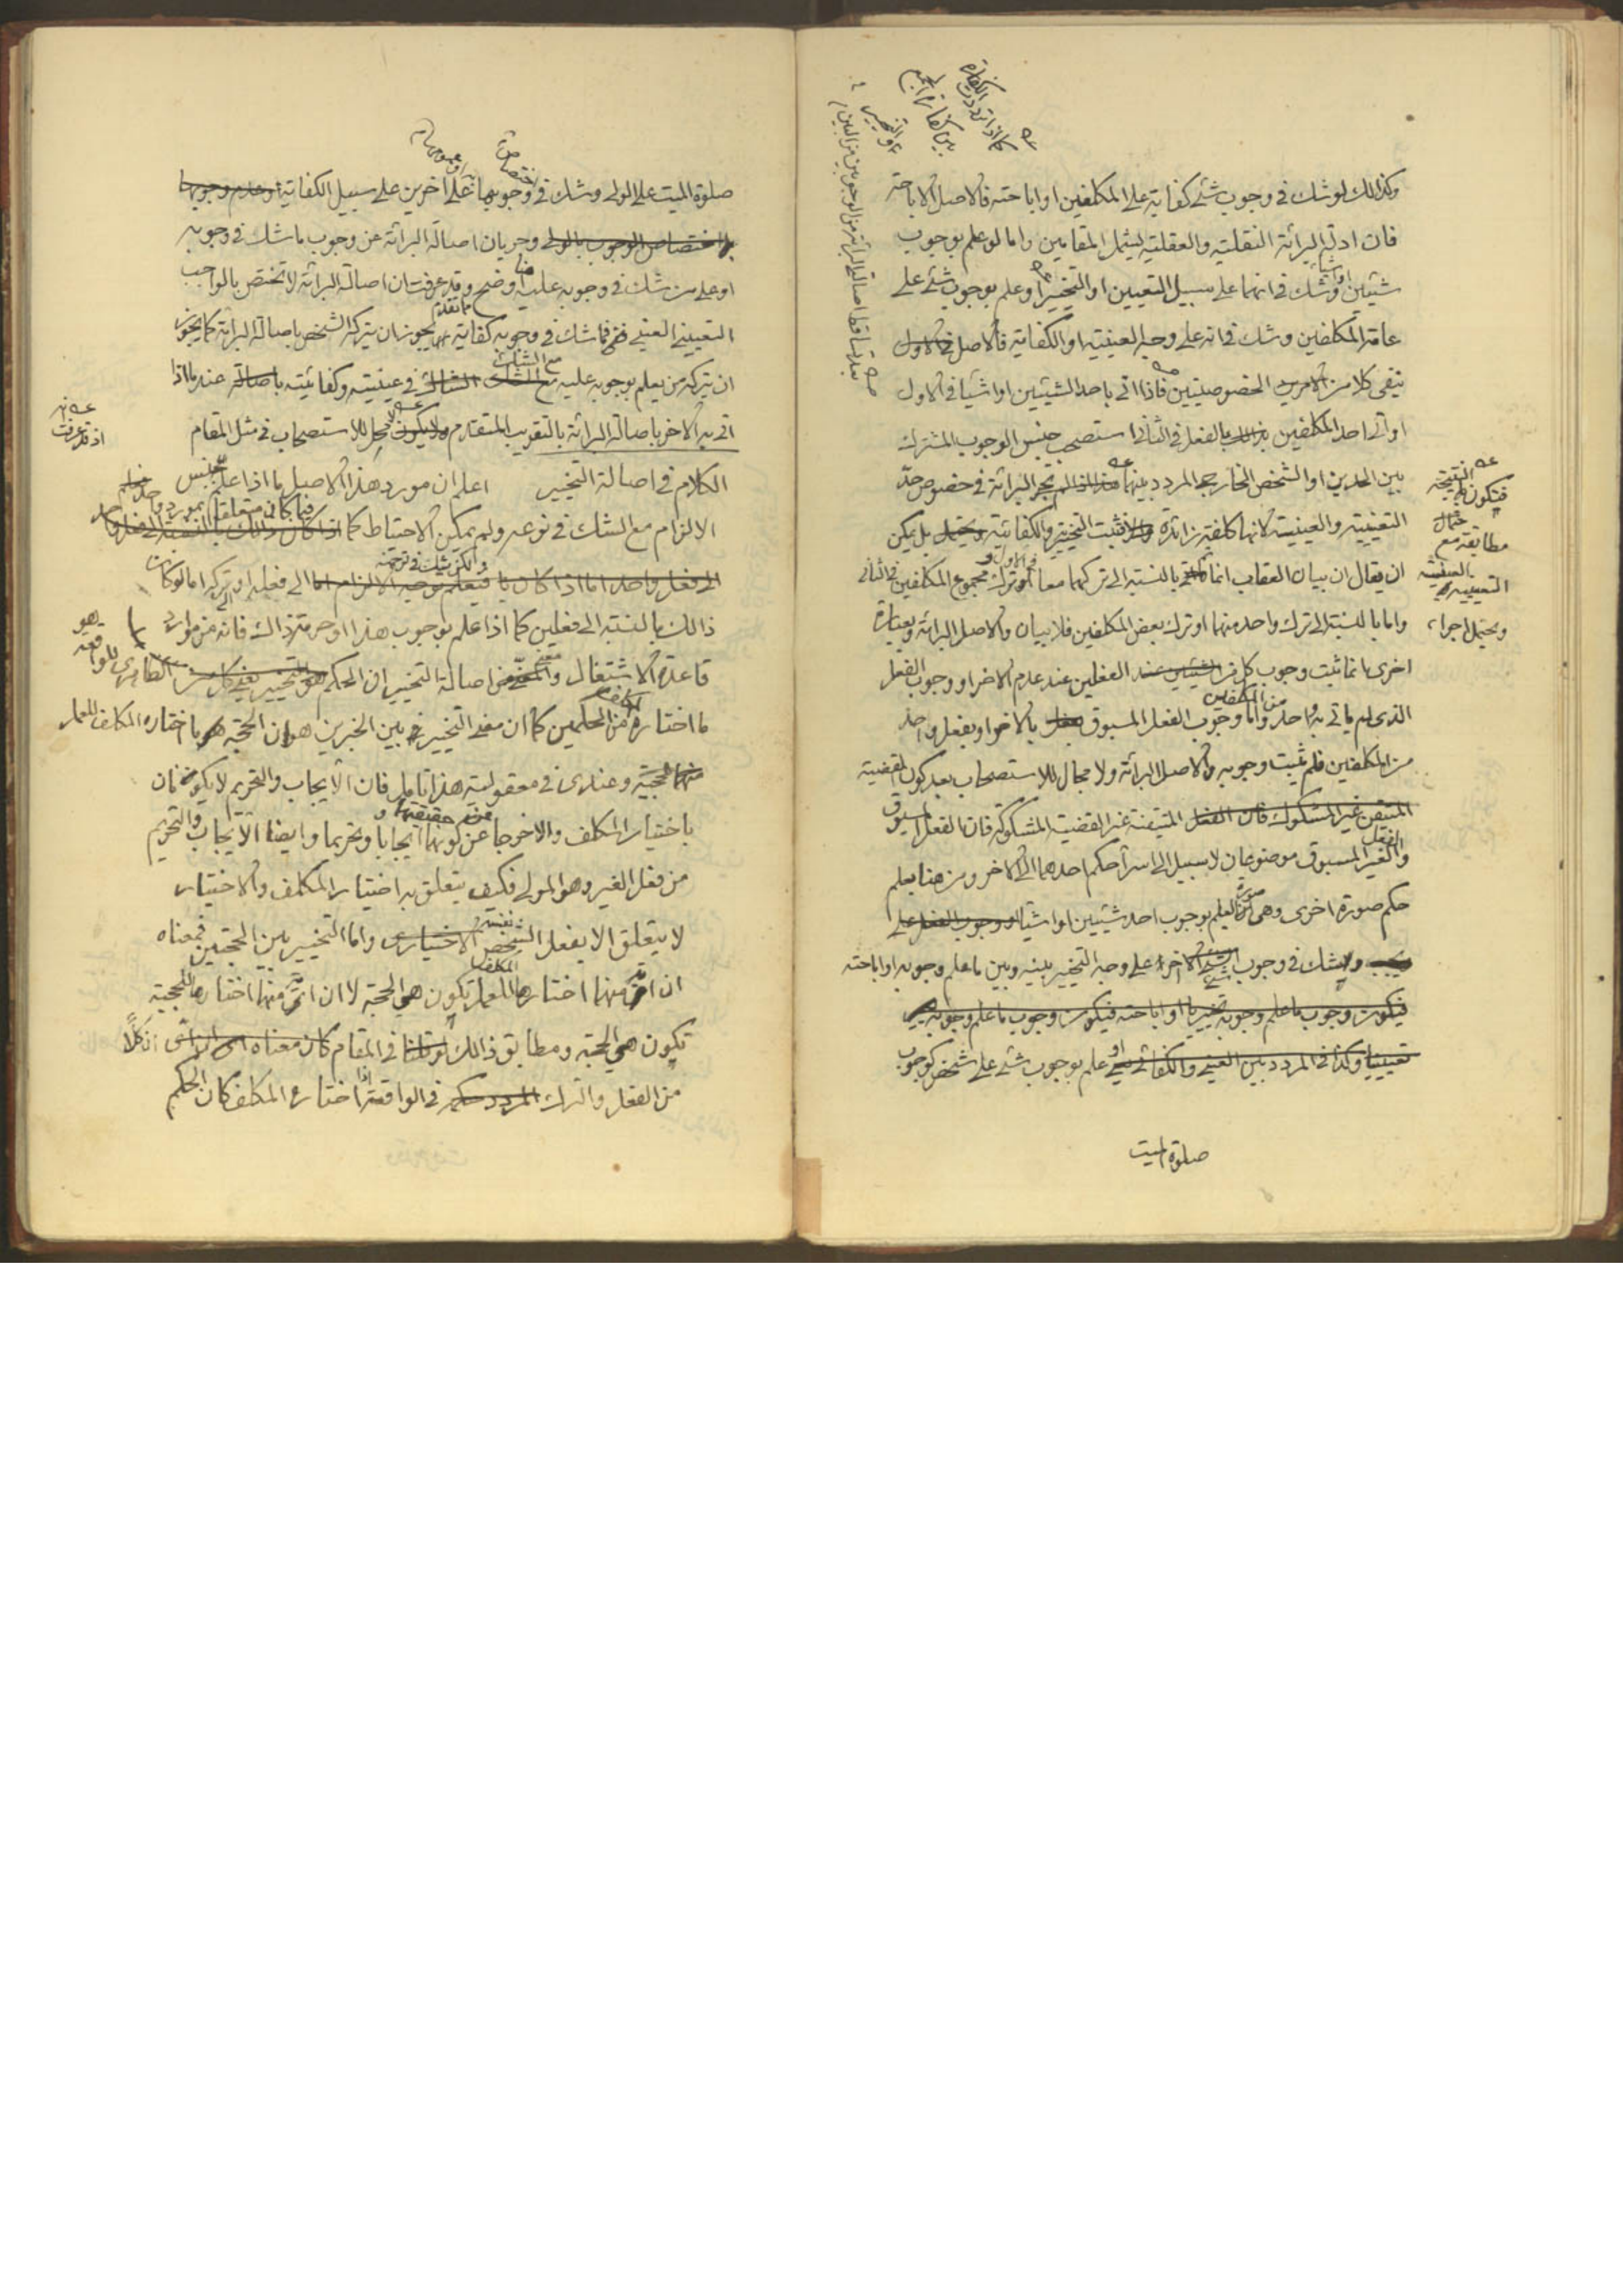 وكذالك لو شك في وجوب شئ كفاية على المكلفين او اباحته فالاصل الاباحة
فان ادلة البرائة النقلية والعقلية يشمل المقامين واما لو علم بوجوب
شيئين او اشياء وشك في انهما على سبيل التعيين او التخيير او علم بوجوب شئ على
عامة المكلفين وشك في انه على وجه العينية او الكفاية فالاصل في الاول
ينفى كلا من الامرين الخصوصيتين فاذا اتى باحد الشيئين او اشياء في الاول
او اتى احد المكلفين بذلك بالفعل في الثاني استصحب جنس الوجوب المشترك
بين الحدين او الشخص الخارجي المردد بينهما لم تجر البرائة في خصوص حدّ
التعينية والعينية لانها كلفة زائدة فثبت التخيير والكفائية ويحتمل بل يمكن
ان يقال ان بيان العقاب انما تم بالنسبة الى تركهما معا في الاول او ترك مجموع المكلفين في الثاني
واما بالنسبة الى ترك واحد منهما او ترك بعض المكلفين فلا بيان والاصل البرائة وبعبارة
اخرى انما ثبت وجوب كل من الشيئين عند الفعلين عند عدم الاخر او وجوب الفعل
الذي لم يأتي به واحد من المكلفين واما وجوب الفعل المسبوق بفعل بالاخر او بفعل واحد
من المكلفين فلم يثبت وجوبه والاصل البرائة ولا مجال للاستصحاب بعد كون القضية
المتيقن غير المشكوك فان الفعل المتيقنة غير القضية المشكوكة فان الفعل المسبوق
والفعل الغير المسبوق موضوعان لا سبيل الى اسراء حكم احدهما الى الاخر ومن هنا يعلم
حكم صورة اخرى وهي صورة العلم بوجوب احد شيئين او اشياء او وجوب الفعل على
وشك في وجوب شئ اخر على وجه التخيير بينه وبين ما علم وجوبه او اباحته
فيكون وجوب ما علم وجوبه تخييريا او اباحته فيكون وجوب ما علم وجوبه
تعيينيا وكذا في المردد بين العيني والكفائي او علم بوجوب شئ على شخص كوجوب
صلوة الميت
فتكون النتيجة
مطابقة مع
التعيينية بالعينية
ويحتمل اجراء
صلوة الميت على الولي وشك في اختصاص وجوبها به او عمومها على اخرين على سبيل الكفاية او عدم وجوبها
باختصاص الوجوب بالولي وجريان اصالة البرائة عن وجوب ما شك في وجوبه
او على من شك في وجوبه عليه هنا اوضح وقد عرفت ان اصالة البرائة لا تختص بالواجب
التعييني العيني فما شك في وجوبه كفاية يجوز ان يتركه الشخص باصالة البرائة كما يجوز
ان يتركه من يعلم بوجوبه عليه مع الشك في عينيته وكفائيته باصالة عند ما اذا
اتى به الاخر باصالة البرائة بالتقريب المتقدم ولا يكون مجال للاستصحاب في مثل المقام
اذ قد عرفت انه
الكلام في اصالة التخيير اعلم ان مورد هذا الاصل ما اذا علم بجنس
الالزام مع الشك في نوعه ولم يمكن الاحتياط كما فيما كان متعلقا بمورد واحد
الى فعل واحد اما اذا كان ولكن شك في توجهه الى فعله او تركه اما لو كان
ذالك بالنسبة الى فعلين كما اذا علم بوجوب هذا او حرمة ذاك فانه من موارد
قاعدة الاشتغال ومعنى اصالة التخيير ان الحكم الظاهري للواقعة هو
ما اختاره المكلف من الحكمين كما ان معنى التخيير بين الخبرين هو ان الحجة ما اختاره المكلف للعمل
منهما حجية وعندي في معقولية هذا تأمل فان الايجاب والتحريم لا يكونان
باختيار المكلف والا خرجا عن حقيقتهما وعن كونهما ايجابا وتحريما وايضا الايجاب والتحريم
من فعل الغير وهو المولى فكيف يتعلق به اختيار المكلف والاختيار
لا يتعلق الا بفعل الشخص نفسه الاختياري واما التخيير بين الحجتين فمعناه
ان اية منهما اختارها المكلف للعمل تكون هي الحجة لا ان اية منهما اختارها للحجية
تكون هي الحجة ومطابق ذالك في المقام كان معناه ان كلاً
من الفعل والترك المردد حكمه في الواقعة اذا اختاره المكلف كان الحكم